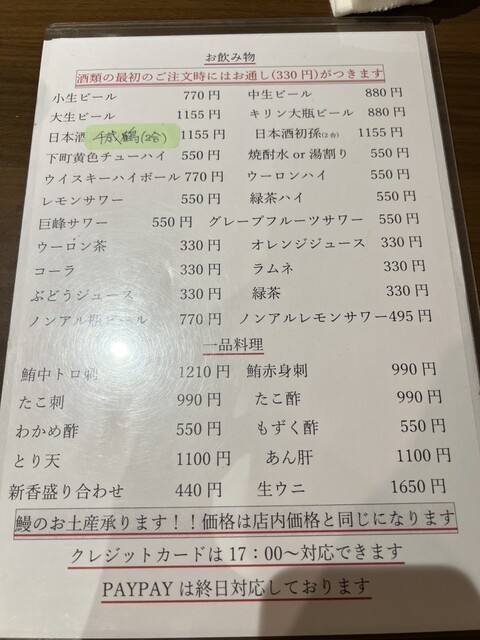 お飲み物
酒類の最初のご注文時にはお通し(330円)がつきます
小生ビール 770円 中生ビール 880円
大生ビール 1155円 キリン大瓶ビール 880円
日本酒 千歳鶴(2合) 1155円 日本酒初孫(2合) 1155円
下町黄色チューハイ 550円 焼酎水 or 湯割り 550円
ウイスキーハイボール 770円 ウーロンハイ 550円
レモンサワー 550円 緑茶ハイ 550円
巨峰サワー 550円 グレープフルーツサワー 550円
ウーロン茶 330円 オレンジジュース 330円
コーラ 330円 ラムネ 330円
ぶどうジュース 330円 緑茶 330円
ノンアル瓶ビール 770円 ノンアルレモンサワー 495円
一品料理
鮪中トロ刺 1210円 鮪赤身刺 990円
たこ刺 990円 たこ酢 990円
わかめ酢 550円 もずく酢 550円
とり天 1100円 あん肝 1100円
新香盛り合わせ 440円 生ウニ 1650円
鰻のお土産承ります！！価格は店内価格と同じになります
クレジットカードは 17：00～対応できます
PAYPAY は終日対応しております